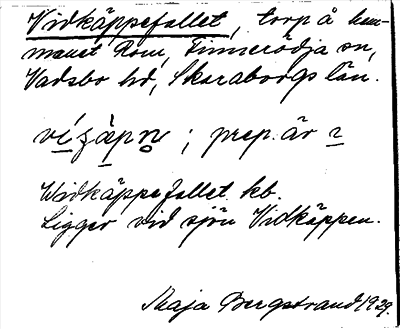 Vidkäppefallet, torp å hem-
manet Rom, Finnerödja sn,
Vadsbo hd, Skaraborgs län.
; prep. är
Widkäppefallet kb.
Ligger vid sjön Vidkäppen.
Maja Bergstrand 1929.